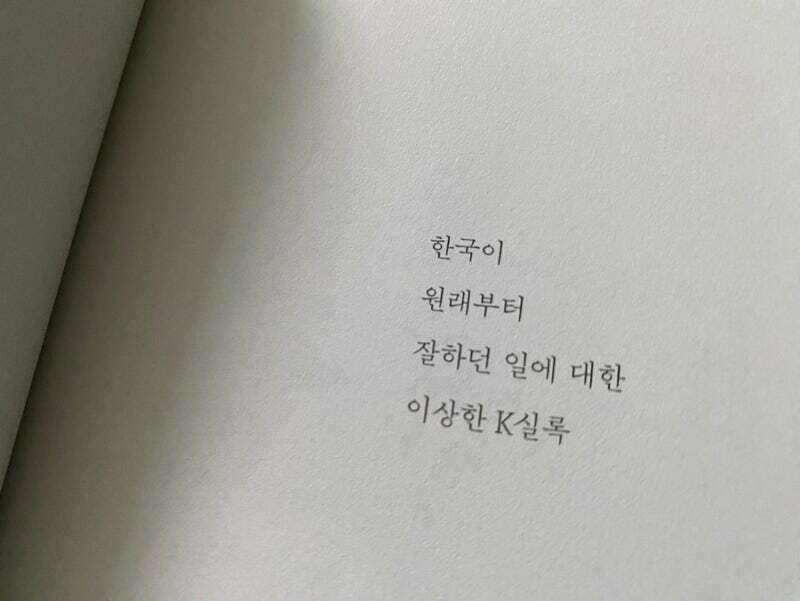 한국이
원래부터
잘하던 일에 대한
이상한 K실록